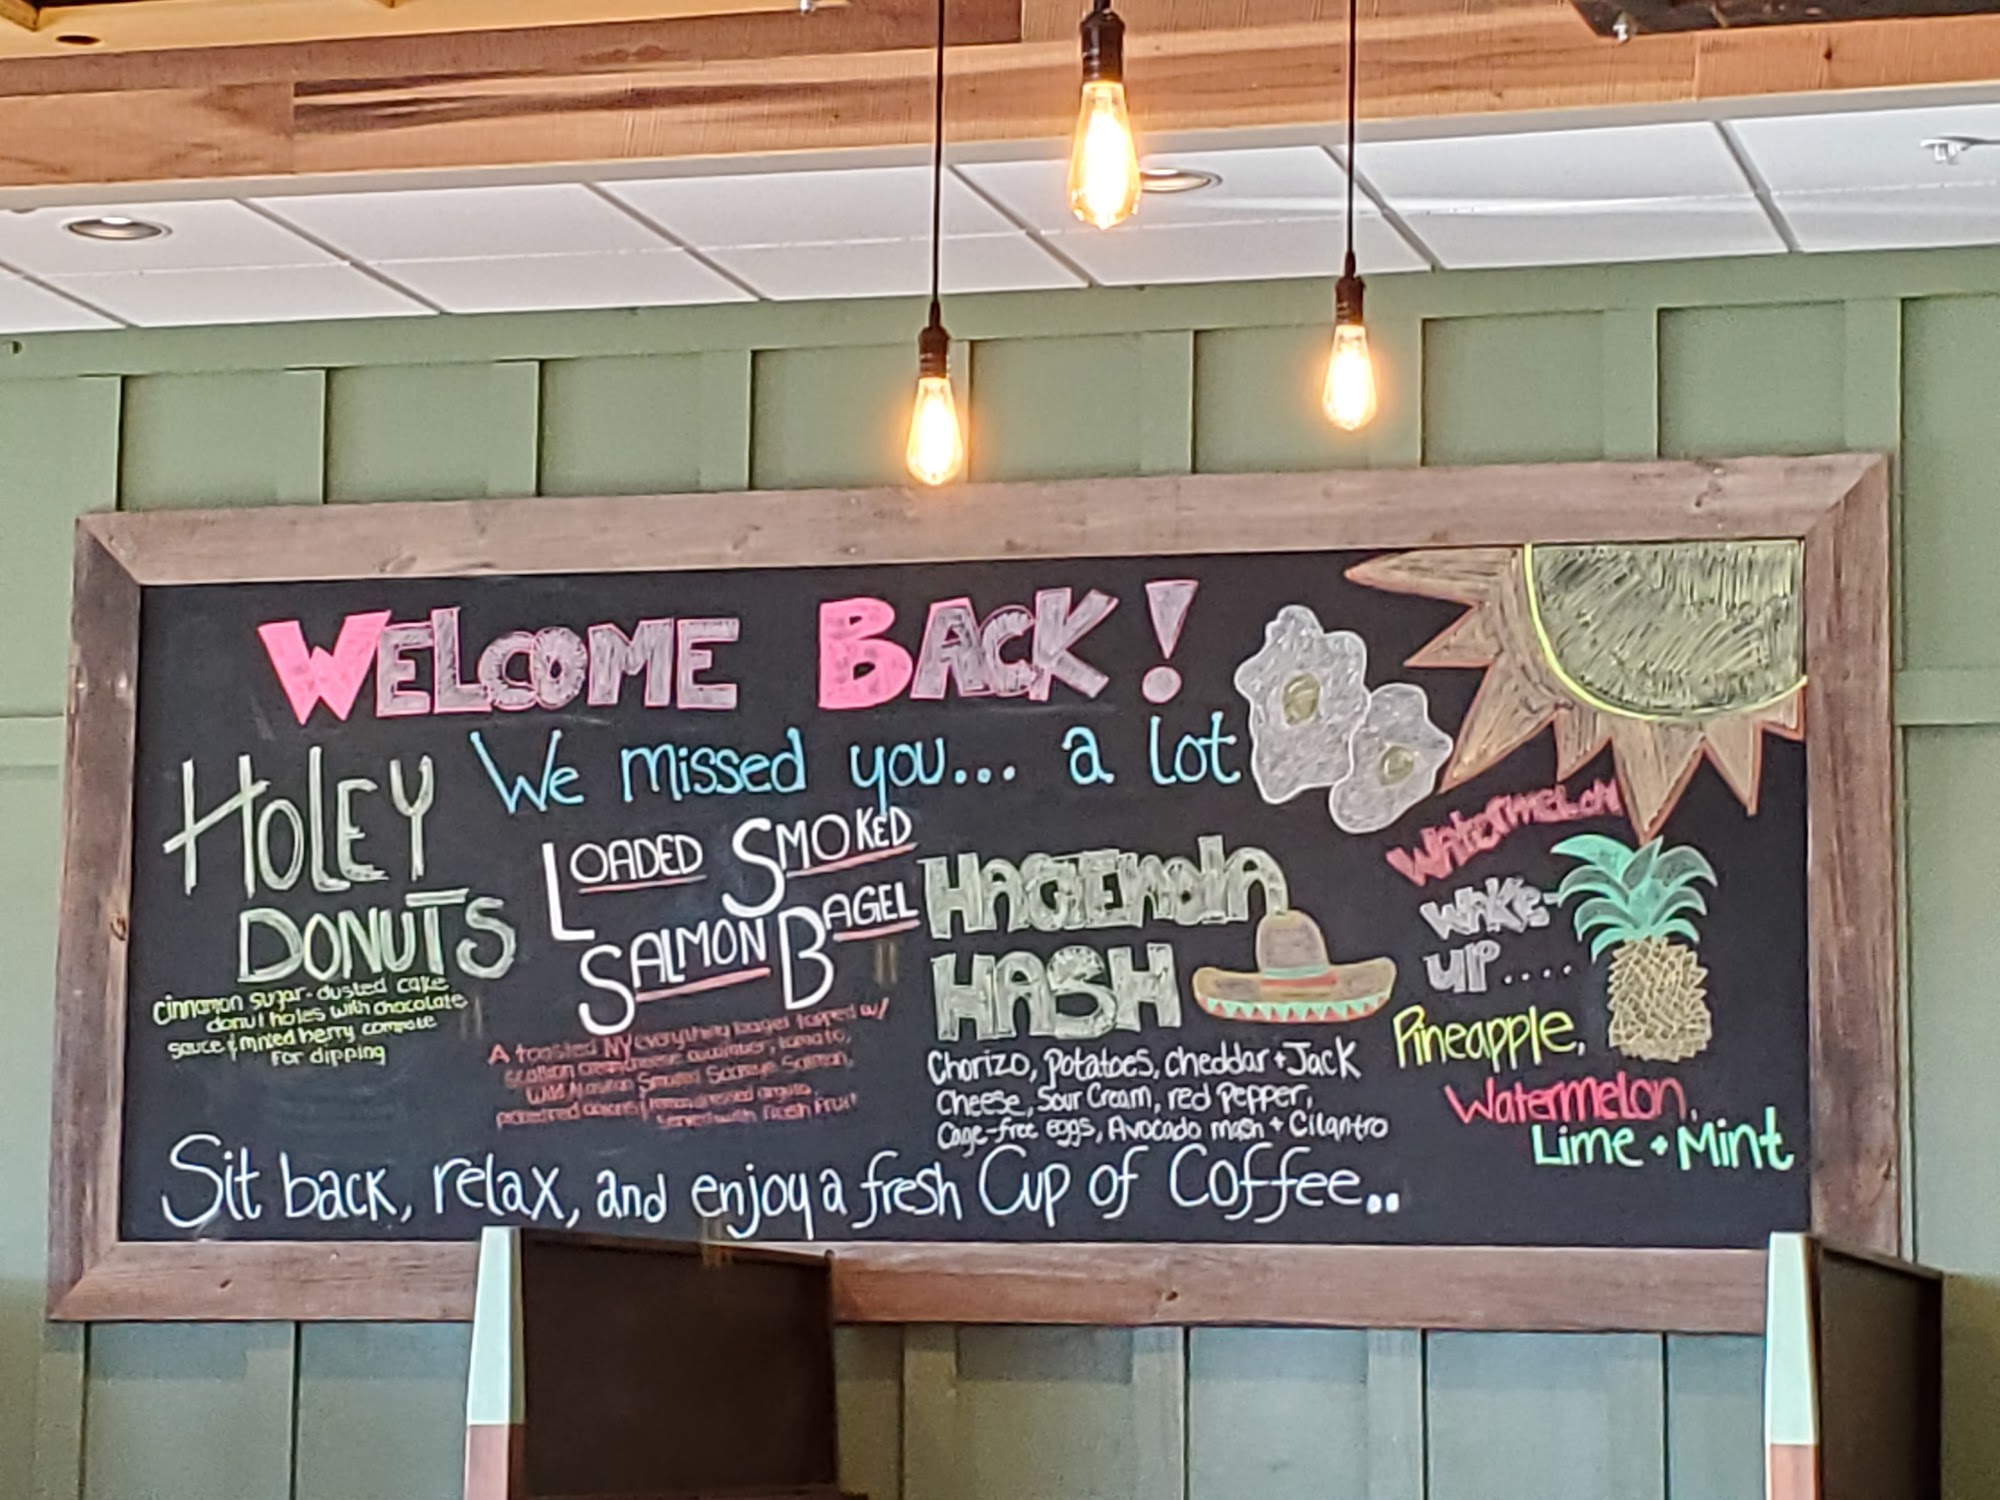 WELCOME BACK!
We missed you... a lot
HOLEY
DONUTS
cinnamon sugar-dusted cake
donut holes with chocolate
sauce & mixed berry compote
for dipping
LOADED SMOKED
SALMON BAGEL
A toasted NY everything bagel topped w/
scallion cream cheese cucumber, tomato,
Wild Alaskan Smoked Sockeye Salmon,
lemon dressed arugula
served with fresh fruit
HACIENDA
HASH
Chorizo, Potatoes, cheddar + Jack
Cheese, Sour Cream, red Pepper,
Cage-free eggs, Avocado mash + Cilantro
Watermelon
WAKE-
UP....
Pineapple,
Watermelon,
Lime + Mint
Sit back, relax, and enjoy a fresh Cup of Coffee..